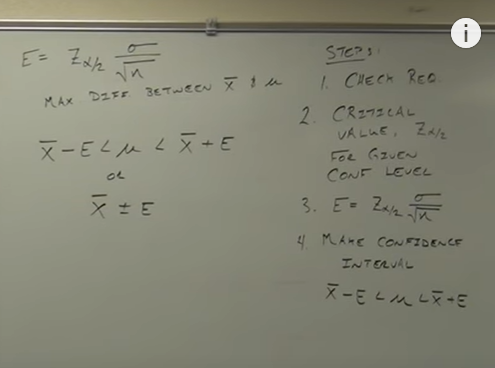 E = Zα/2 σ/√n
MAX DIFF. BETWEEN x̄ & μ
x̄ - E < μ < x̄ + E
or
x̄ ± E
STEPS:
1. CHECK REQ.
2. CRITICAL
VALUE, Zα/2
FOR GIVEN
CONF LEVEL
3. E = Zα/2 σ/√n
4. MAKE CONFIDENCE
INTERVAL
x̄ - E < μ < x̄ + E